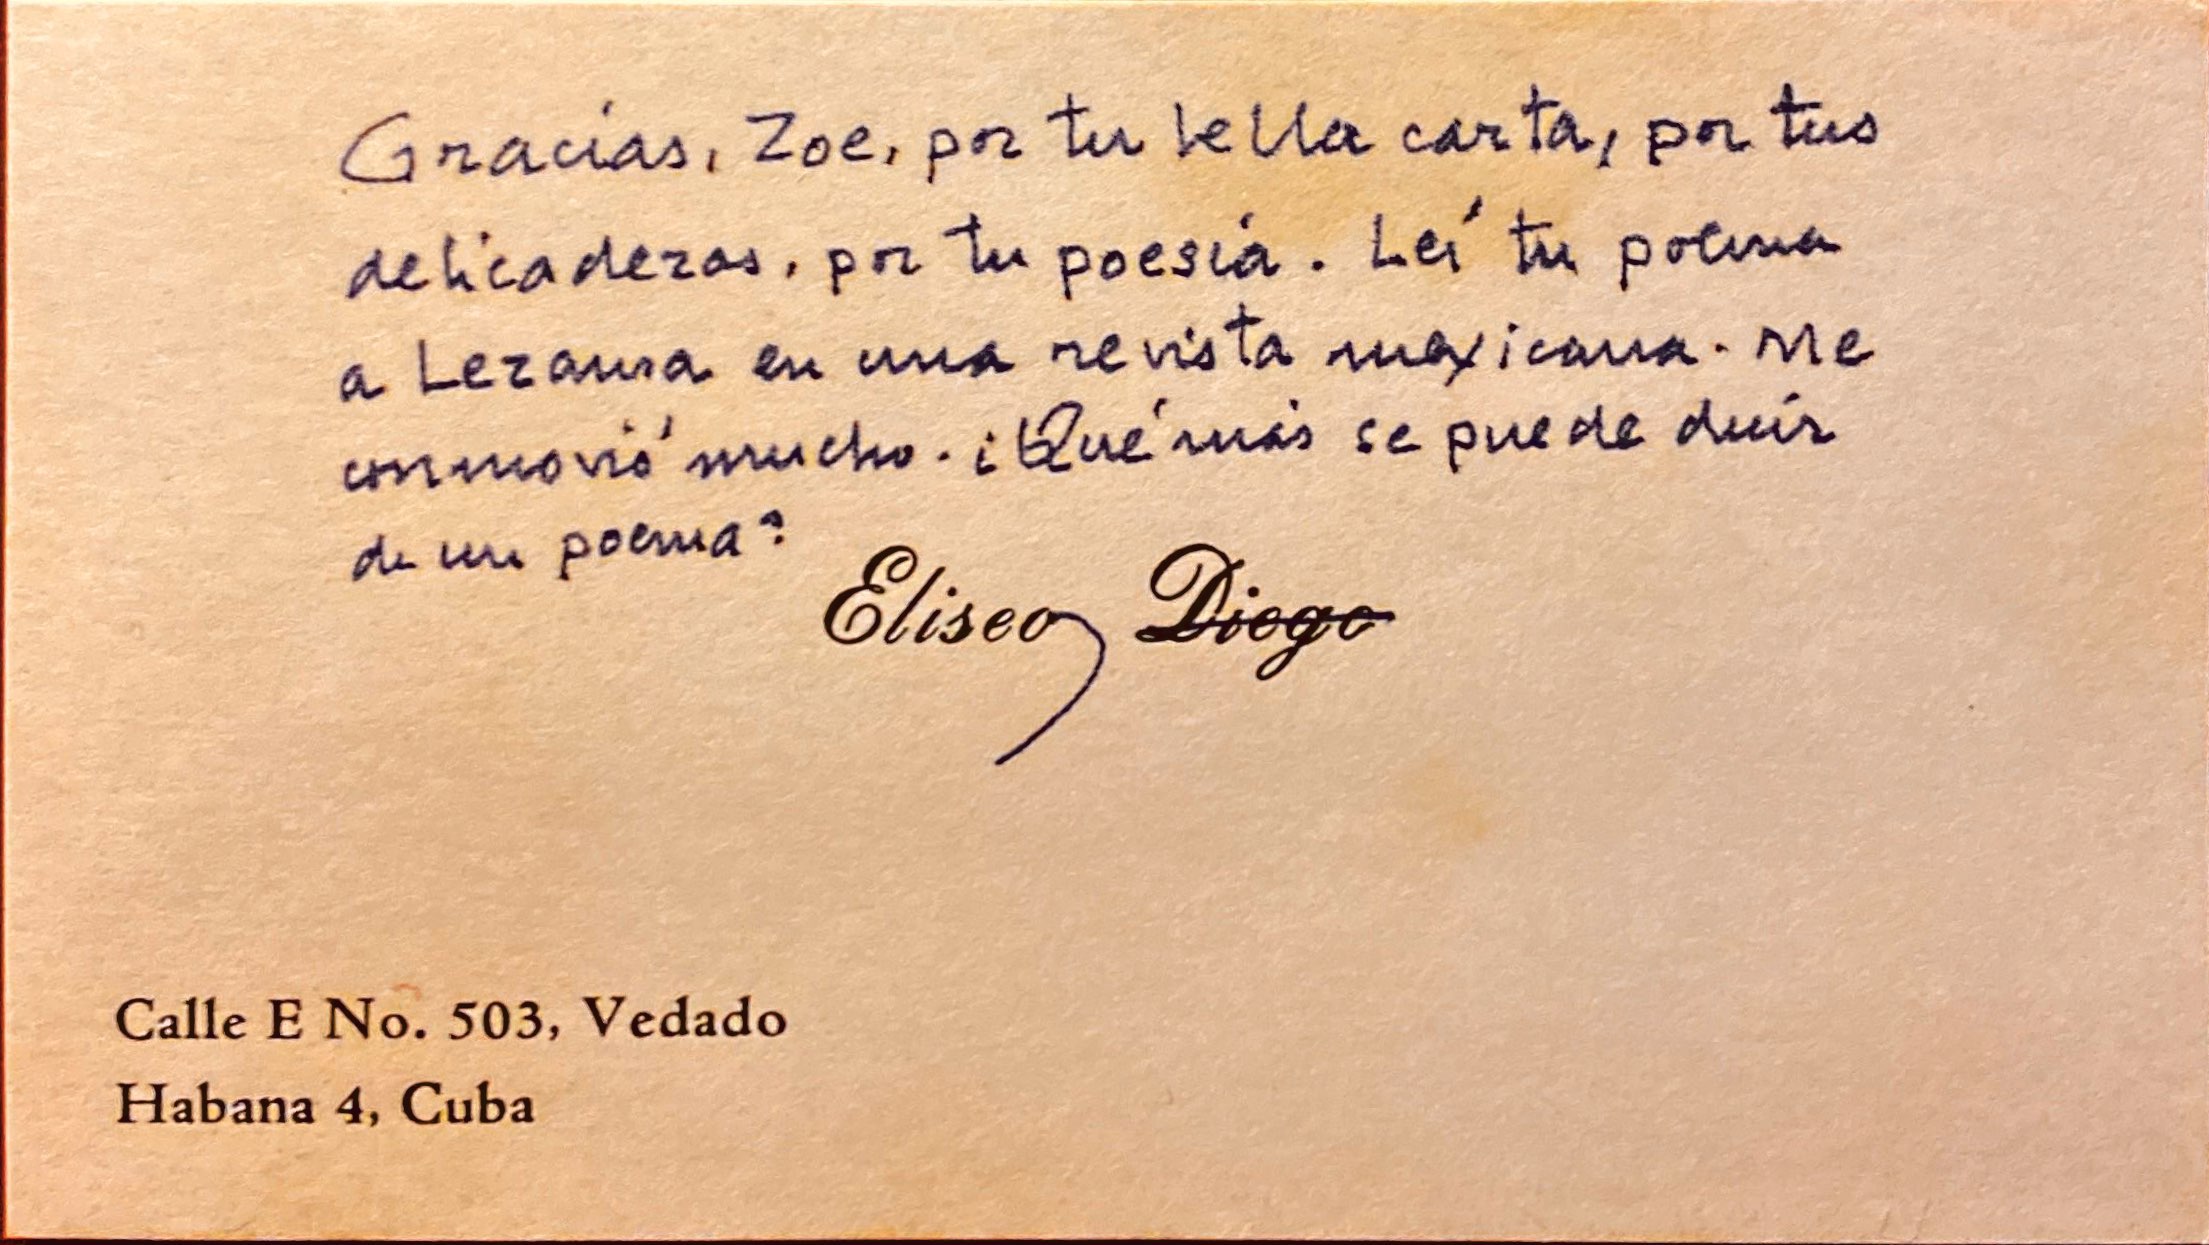 Gracias, Zoe, por tu bella carta, por tus
delicadezas, por tu poesía. Leí tu poema
a Lezama en una revista mexicana. Me
conmovió mucho. ¿Qué más se puede decir
de un poema?
Eliseo Diego
Calle E No. 503, Vedado
Habana 4, Cuba